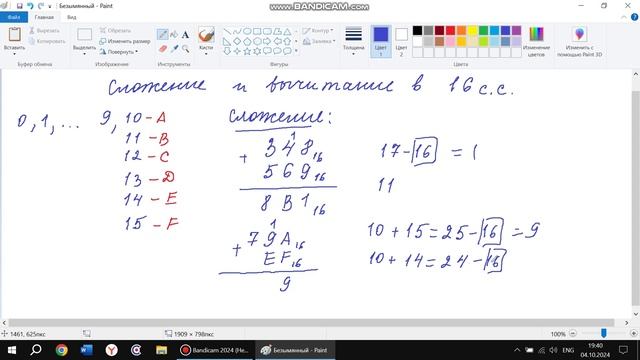 www.BANDICAM.com
Безымянный - Paint
Файл Главная Вид
Вставить
Вырезать
Копировать
Выделить
Обрезать
Изменить размер
Повернуть
Кисти
Контур
Заливка
Толщина
Цвет 1
Цвет 2
Изменение цветов
Изменить с помощью Paint 3D
Буфер обмена Изображение Инструменты Фигуры Цвета
Сложение и вычитание в 16 с.с.
0, 1, ... 9, 10 - A
11 - B
12 - C
13 - D
14 - E
15 - F
Сложение:
1
+ 348₁₆
569₁₆
8B1₁₆
1
+ 79A₁₆
EF₁₆
9
17 - 16 = 1
11
10 + 15 = 25 - 16 = 9
10 + 14 = 24 - 16
1461, 625пкс
1909 × 798пкс
100%
Bandicam 2024 (Не...
Безымянный - Paint
ENG
19:40
04.10.2024